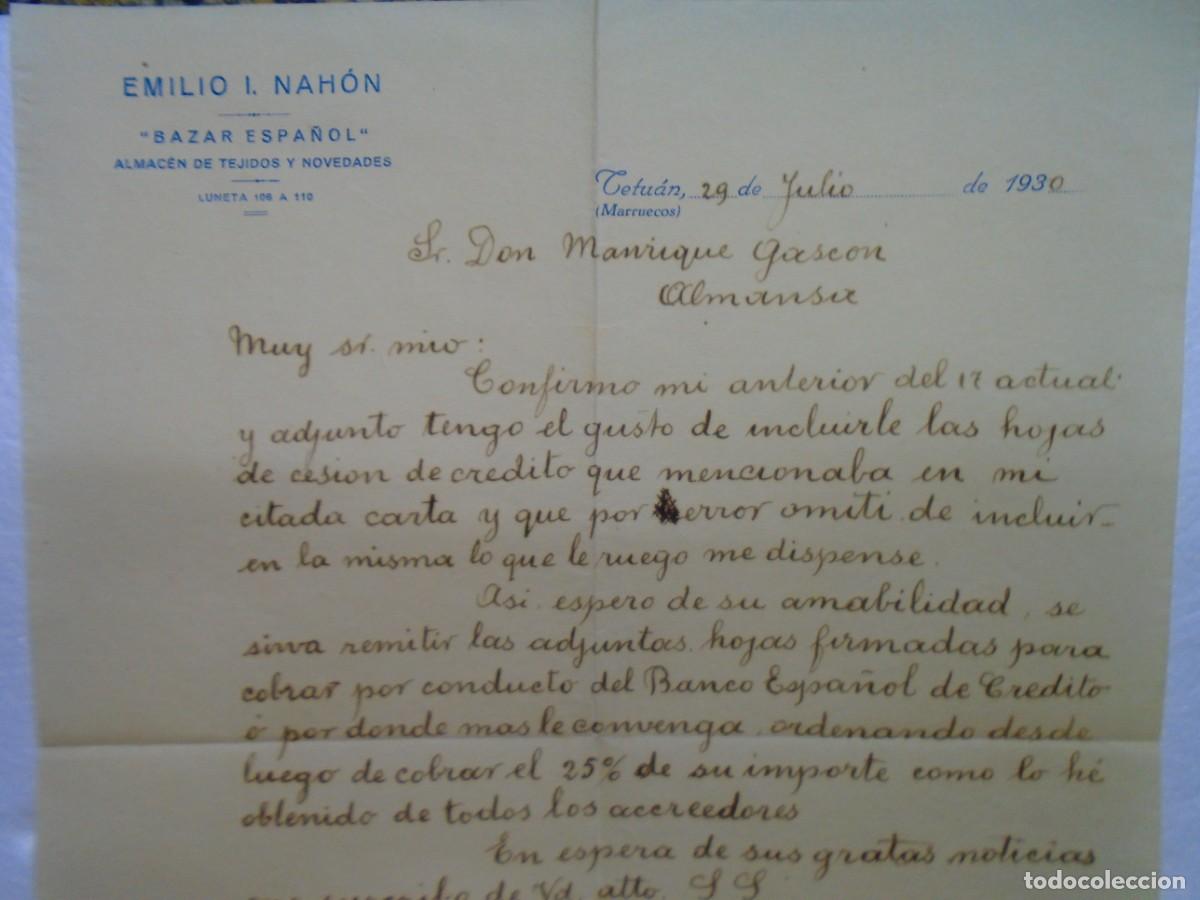 EMILIO I. NAHÓN
"BAZAR ESPAÑOL"
ALMACÉN DE TEJIDOS Y NOVEDADES
LUNETA 106 A 110
Tetuán, 29 de Julio de 1930
(Marruecos)
Sr. Don Manrique Gascon
Almansa
Muy sr. mio:
Confirmo mi anterior del 17 actual
y adjunto tengo el gusto de incluirle las hojas
de cesion de credito que mencionaba en mi
citada carta y que por error omiti de incluir
en la misma lo que le ruego me dispense.
Asi espero de su amabilidad, se
sirva remitir las adjuntas hojas firmadas para
cobrar por conducto del Banco Español de Credito
ó por donde mas le convenga ordenando desde
luego de cobrar el 25% de su importe como lo hé
obtenido de todos los accreedores
En espera de sus gratas noticias
suscribo de Vd. atto. S S
todocoleccion